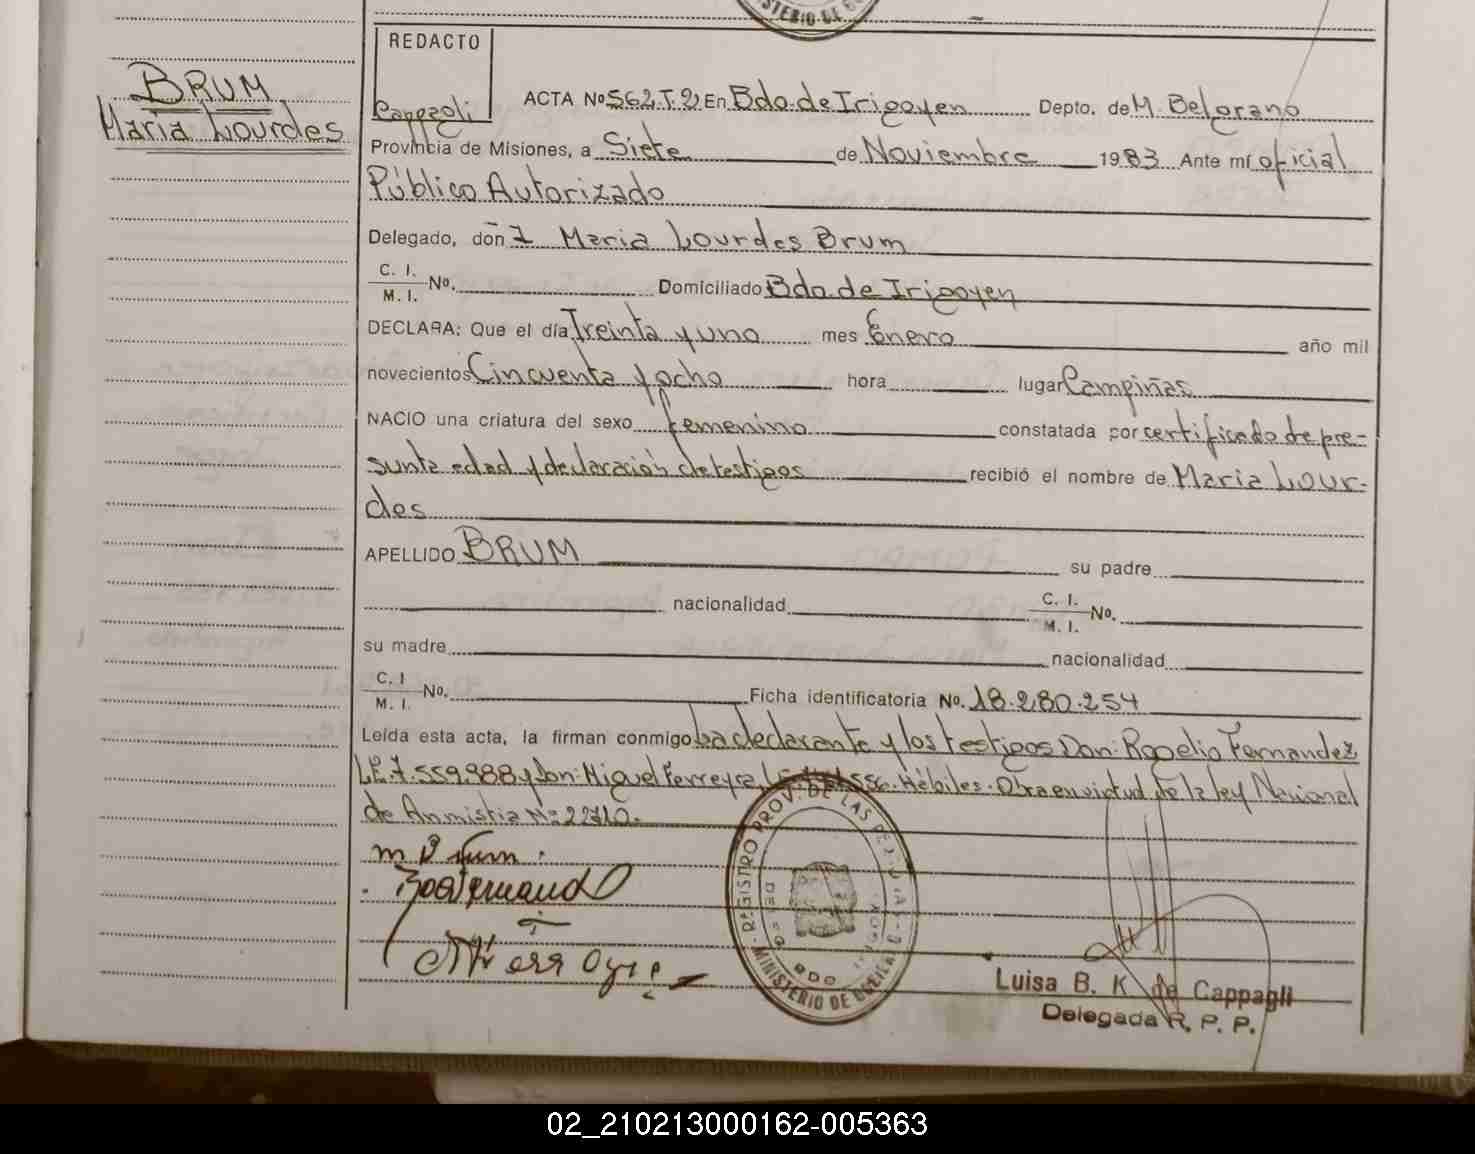 MINISTERIO DE
REDACTO
BRUM
Maria Lourdes
Cappagli
ACTA No 562 T. 2) En Bdo. de Irigoyen Depto. de M. Belgrano
Provincia de Misiones, a Siete de Noviembre 1983 Ante mí oficial
Público Autorizado
Delegado, don María Lourdes Brum
C. I.
M. I. No. Domiciliado Bdo. de Irigoyen
DECLARA: Que el día Treinta y uno mes Enero año mil
novecientos Cincuenta y ocho hora lugar Campiñas
NACIO una criatura del sexo femenino constatada por certificado de pre-
sunta edad y declaración de testigos recibió el nombre de Maria Lour-
des
APELLIDO BRUM su padre
nacionalidad C. I.
M. I. No.
su madre nacionalidad
C. I
M. I. No. Ficha identificatoria No. 18.280.254
Leída esta acta, la firman conmigo La declarante y los testigos Don: Rogelio Fernandez
L.E. 7.559.988 y don: Miguel Ferreyra, Hábiles. Obra en virtud de la ley Nacional
de Anmistia Nº
m Brum.
REGISTRO PROV. DE LAS
MINISTERIO DE
BDO
Luisa B. K de Cappagli
Delegada R. P. P.
02_210213000162-005363